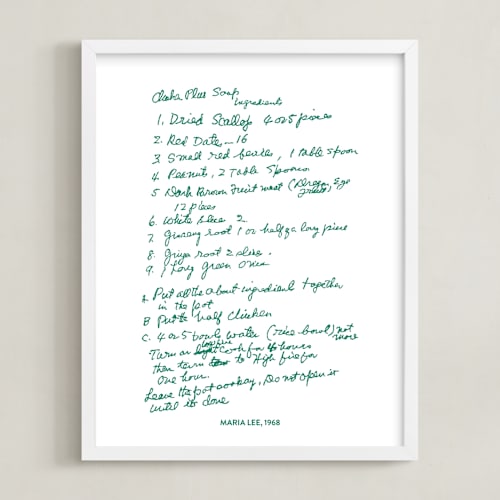 Plus Soup
Ingredients
1. Dried Scallop 4 or 5 pieces
2. Red Date - 16
3. Small red beans, 1 table spoon
4. Peanuts, 2 Table Spoons
5 Dark Brown Fruit
12 pieces
6. White 2
7. Ginseng root 1 or half a long piece
8. root 2 slice.
9. 1 Long green onion
A Put all the about ingredient together
in the pot
B Put half chicken
C. 4 or 5 bowls water (rice bowl) not
more
Turn on low fire cook for 4 hours
then turn to High fire for
One hour.
Leave the pot, Do not open it
until it's done
MARIA LEE, 1968